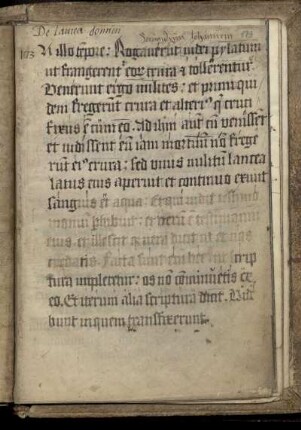 De lancea domini
Secundum Johannem
N illo tempore: Rogaverunt iudei pylatum
ut frangerent eorum crura et tollerentur.
Venerunt ergo milites: et primi qui
dem fregerunt crura et alterius qui cruci
fixus est cum eo. Ad ihm autem cum venissent
et vidissent eum iam mortuum non frege
runt eius crura: sed unus militum lancea
latus eius aperuit et continuo exivit
sanguis et aqua. Et qui vidit testimo
nium perhibuit: et verum est testimonium
eius. et ille scit quia vera dicit ut et vos
credatis. Facta sunt enim hec ut scrip
tura impleretur: os non comminuetis ex
eo. Et iterum alia scriptura dicit. Vide
bunt in quem transfixerunt.